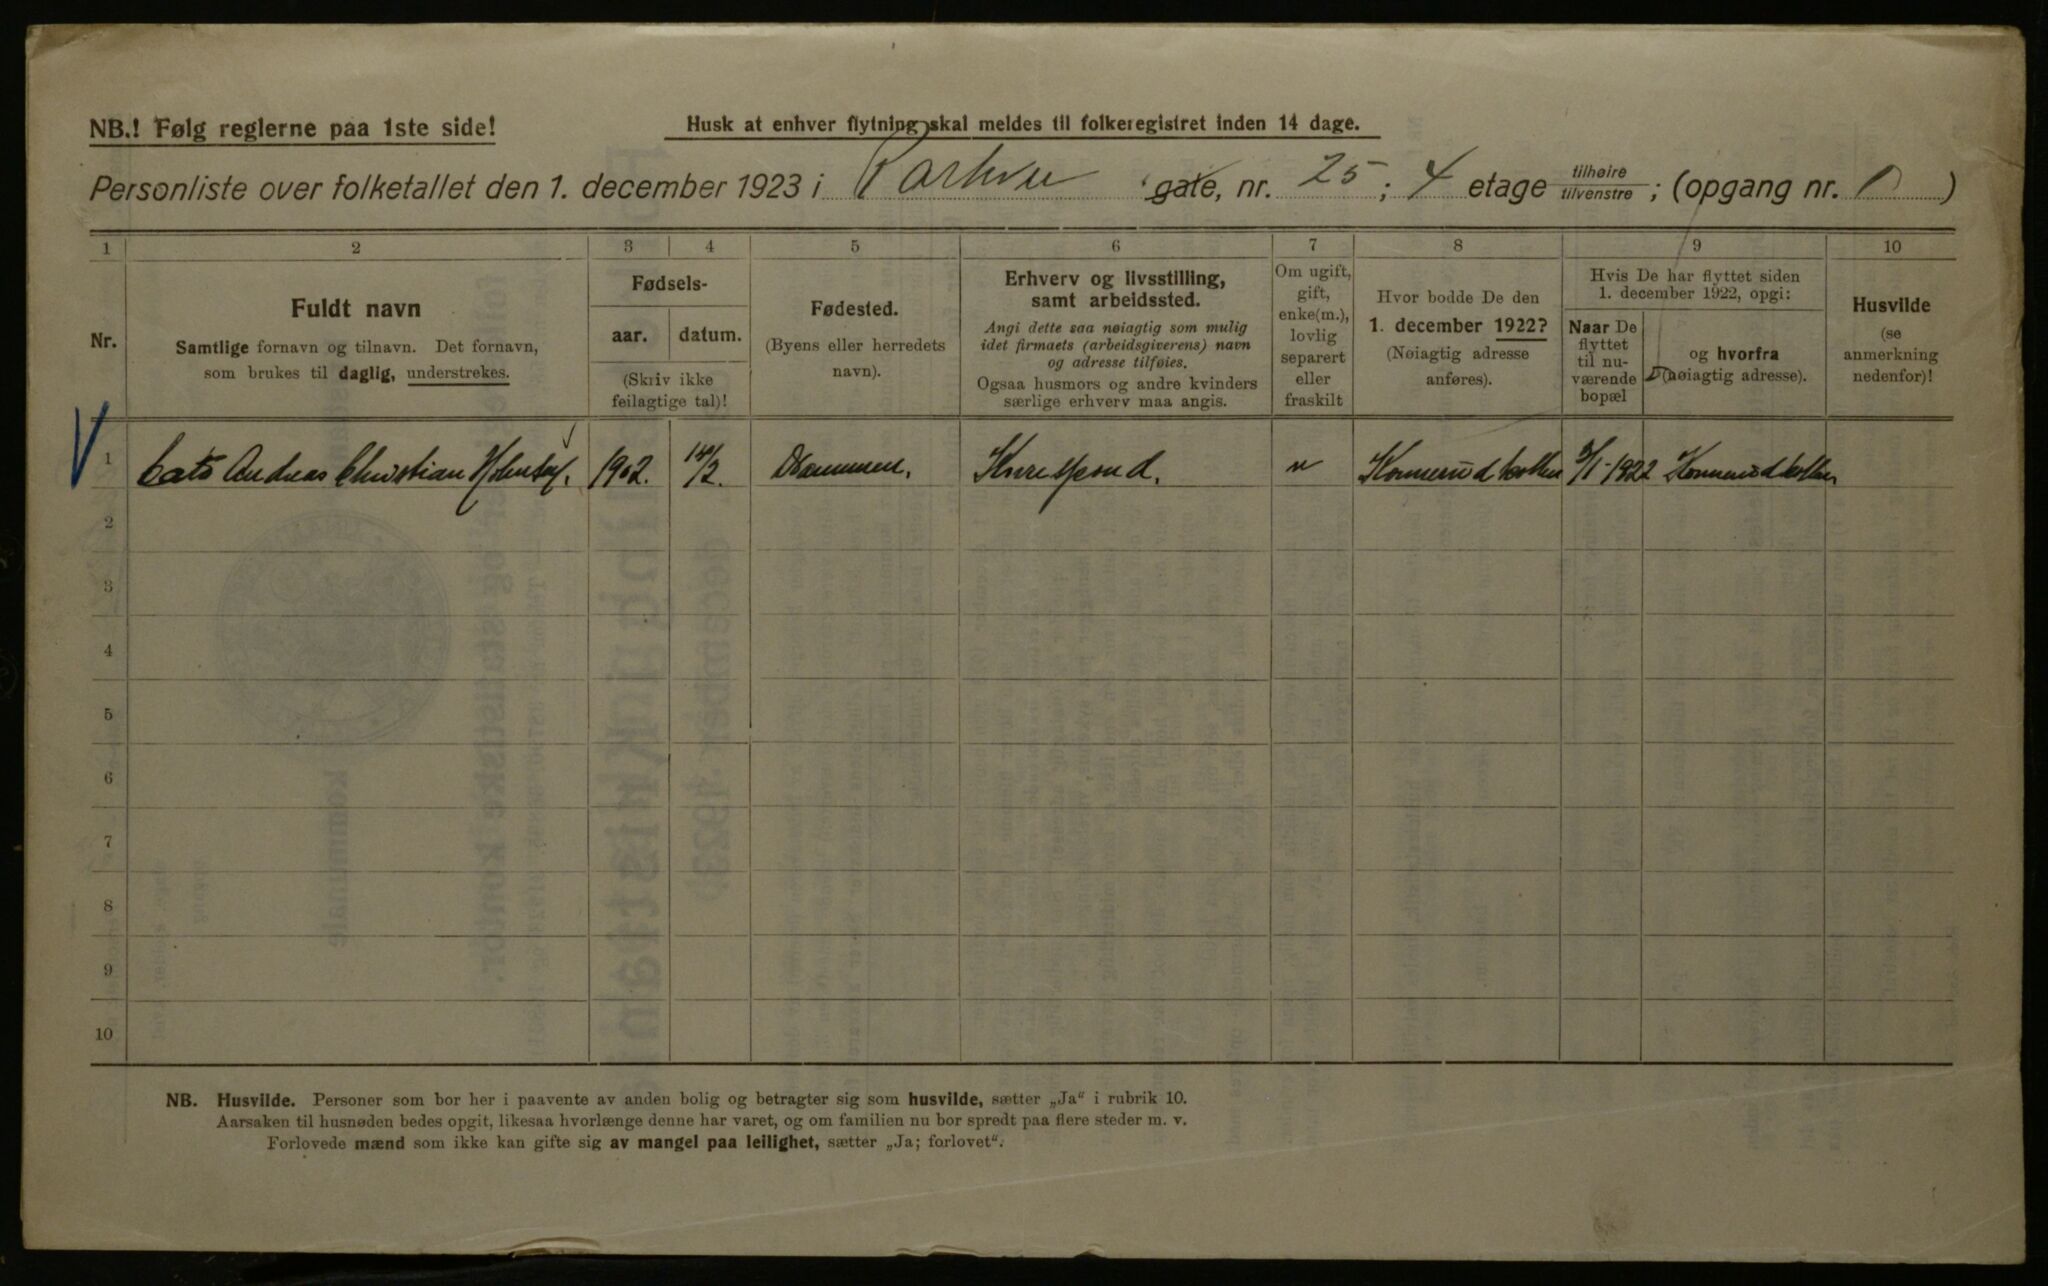 NB.! Følg reglerne paa 1ste side!
Husk at enhver flytning skal meldes til folkeregistret inden 14 dage.
Personliste over folketallet den 1. december 1923 i Parkvei gate, nr. 25 ; 4 etage tilhøire tilvenstre ; (opgang nr. )
1 2 3 4 5 6 7 8 9 10
Nr.
Fuldt navn
Samtlige fornavn og tilnavn. Det fornavn,
som brukes til daglig, understrekes.
Fødsels-
aar. datum.
(Skriv ikke
feilagtige tal)!
Fødested.
(Byens eller herredets
navn).
Erhverv og livsstilling,
samt arbeidssted.
Angi dette saa nøiagtig som mulig
idet firmaets (arbeidsgiverens) navn
og adresse tilføies.
Ogsaa husmors og andre kvinders
særlige erhverv maa angis.
Om ugift,
gift,
enke(m.),
lovlig
separert
eller
fraskilt
Hvor bodde De den
1. december 1922?
(Nøiagtig adresse
anføres).
Hvis De har flyttet siden
1. december 1922, opgi:
Naar De
flyttet
til nu-
værende
bopæl
og hvorfra
(nøiagtig adresse).
Husvilde
(se
anmerkning
nedenfor)!
1 Andreas Christian 1902. 14/2. Drammen. Korrespond. Konnerudkollen 1922 Konnerudkollen
2
3
4
5
6
7
8
9
10
NB. Husvilde. Personer som bor her i paavente av anden bolig og betragter sig som husvilde, sætter „Ja“ i rubrik 10.
Aarsaken til husnøden bedes opgit, likesaa hvorlænge denne har varet, og om familien nu bor spredt paa flere steder m. v.
Forlovede mænd som ikke kan gifte sig av mangel paa leilighet, sætter „Ja; forlovet“.